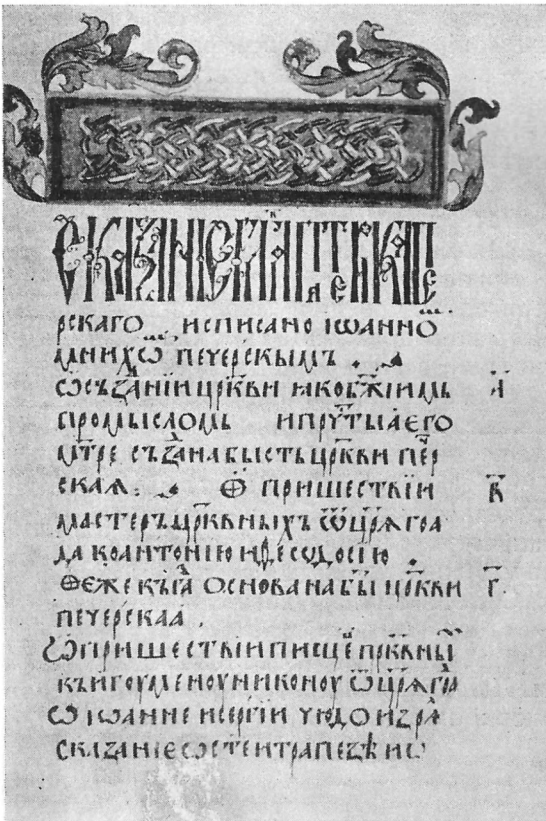 Сказаніе к҃нигѣ патерика пе
рскаго исписано іѡанномъ
мнихѡмъ печерскымъ
ѡ съзⷣаніи цр҃кви ꙗко бж҃іимъ а҃
промысломъ и прⷱ҇тыа єго
мт҃ре съзⷣана бысть цр҃кви печ҇ер
скаа ѡ пришествіи в҃
мастеръ цр҃квныхъ ѿ цр҃ѧгра
да ко антонїю и ѳеѡдосїю
ѡ єже когда основана бы҇ цр҃кви г҃
печерскаа
ѡ пришествіи писцеⷨ цр҃квныⷯ
къ игоуменоу никоноу ѿ цр҃ѧгра
ѡ іѡанне и сергіи чюдо изрѧ
сказаніе ѡ стеи трапезѣ и ѡ